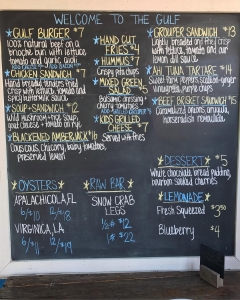 WELCOME TO THE GULF
GULF BURGER $7
100% natural beef on a
brioche bun with lettuce,
tomato and garlic aioli
CHICKEN SANDWICH $7
Hand breaded tenders
fries with lettuce, tomato and
Spicy buttermilk sauce
SOUP + SANDWICH $12
Wild mushroom + rice soup,
goat cheese + tomato on rye
BLACKENED AMBERJACK $16
Couscous, Chicory, curry tomatoes,
preserved lemon
HAND CUT
FRIES $4
HUMMUS $7
Crispy pita chips
MIXED GREEN
SALAD $5
Balsamic dressing
cherry tomatoes
KIDS GRILLED
CHEESE $7
Served with fries
GROUPER SANDWICH $13
Lightly breaded and fried crisp
with lettuce, tomato and
lemon dill sauce
AHI TUNA TARTARE $14
Soft herbs, peppers, scallion, ginger
vinaigrette, crispy pitas
BEEF BRISKET SANDWICH $15
Caramelized onions, arugula,
horseradish, fries
DESSERT $5
White chocolate bread pudding,
bourbon soaked cherries
LEMONADE
Fresh Squeezed $3.50
Blueberry $4
OYSTERS
APALACHICOLA, FL
6/$10 12/$18
VIRGINICA, LA
6/$11 12/$19
RAW BAR
SNOW CRAB
LEGS
1/2 lb $12
1 lb $22